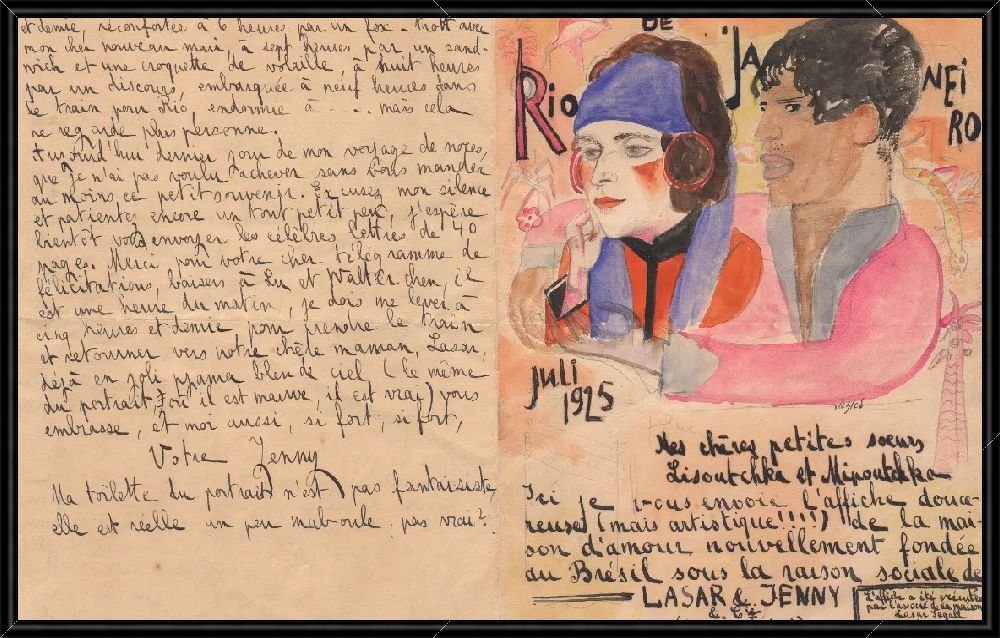 et demie, réconfortée à 6 heures par un fox-trott avec
mon cher nouveau mari, à sept heures par un sand-
wich et une croquette de volaille, à huit heures
par un discours, embarquée à neuf heures dans
le train pour Rio, endormie à .... mais cela
ne regarde plus personne.
Aujourd'hui dernier jour de mon voyage de noces,
que je n'ai pas voulu achever sans vous mander
au moins ce petit souvenir. Excusez mon silence
et patientez encore un tout petit peu, j'espère
bientôt vous envoyer les célèbres lettres de 40
pages. Merci pour votre cher télégramme de
félicitations, baisers à Lu et Walterchen, il
est une heure du matin, je dois me lever à
cinq heures et demie pour prendre le train
et retourner vers notre chère maman, Lasar,
déjà en joli pyjama bleu de ciel (le même
du portrait, où il est mauve, il est vrai) vous
embrasse, et moi aussi, si fort, si fort,
Votre Jenny
Ma toilette du portrait n'est pas fantaisiste,
elle est réelle un peu maboule, pas vrai?
RIO DE JANEIRO
Juli
1925
Mes chères petites soeurs
Lisoutchka et Mipoutchka
Ici je vous envoie l'affiche douce-
reuse (mais artistique!!!!) de la mai-
son d'amour nouvellement fondée
au Brésil sous la raison sociale de
LASAR & JENNY
L'affiche a été exécutée
par l'associé de la maison
Lasar Segall